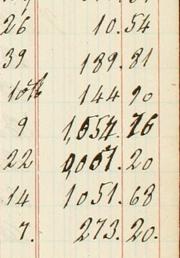 26 10.54
39 189.81
10th 144 90
9 1,554.76
22 20
14 1051.68
7. 273.20.